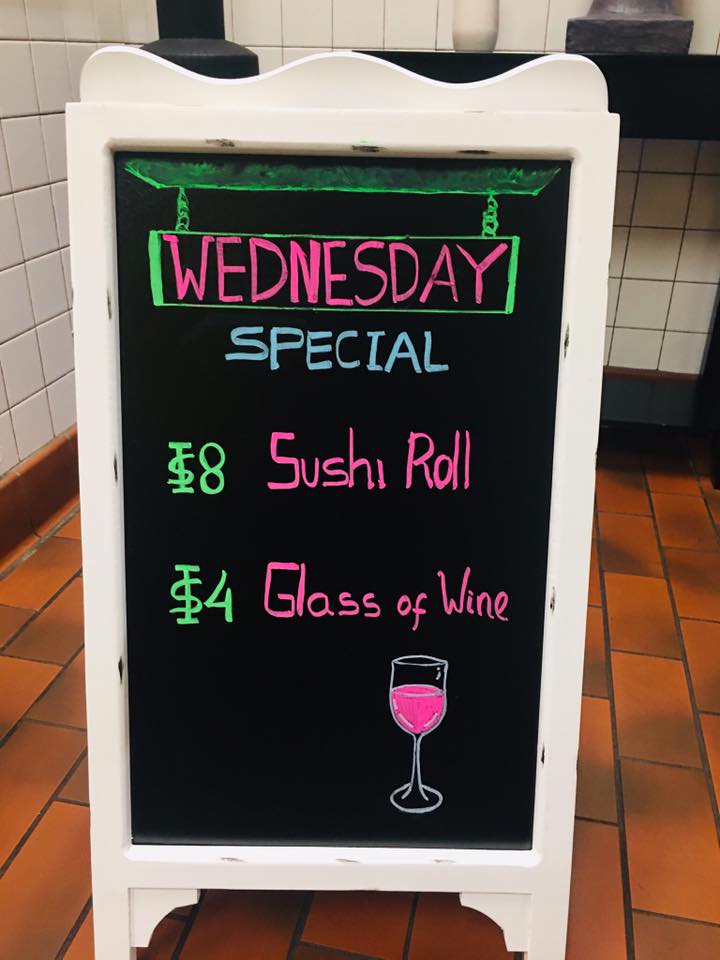 WEDNESDAY
SPECIAL
$8 Sushi Roll
$4 Glass of Wine